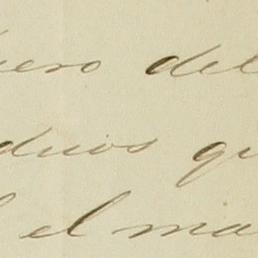 ero del
duos qu
el ma